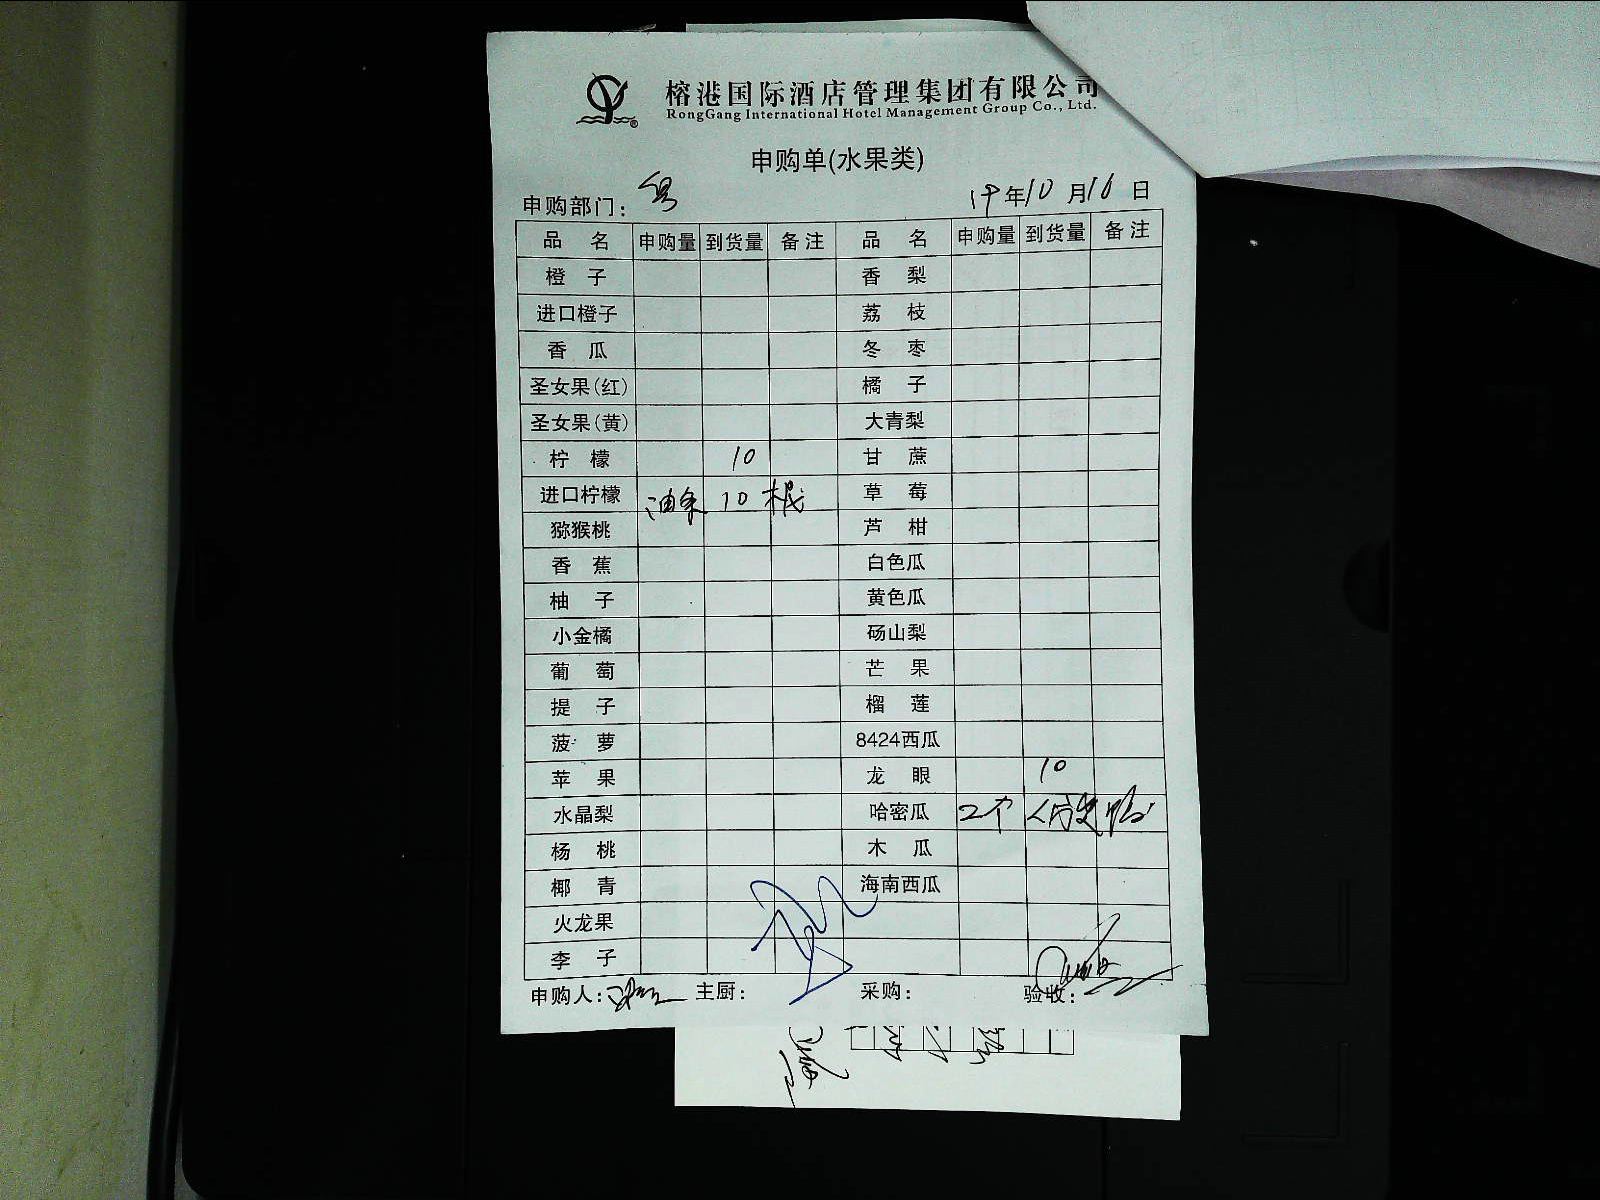 榕港国际酒店管理集团有限公司
RongGang International Hotel Management Group Co., Ltd.
申购单(水果类)
申购部门:
19年10月16日
品名 申购量 到货量 备注 品名 申购量 到货量 备注
橙子 香梨
进口橙子 荔枝
香瓜 冬枣
圣女果(红) 橘子
圣女果(黄) 大青梨
柠檬 10 甘蔗
进口柠檬 油条 10 根 草莓
猕猴桃 芦柑
香蕉 白色瓜
柚子 黄色瓜
小金橘 砀山梨
葡萄 芒果
提子 榴莲
菠萝 8424西瓜
苹果 龙眼 10
水晶梨 哈密瓜 2个
杨桃 木瓜
椰青 海南西瓜
火龙果
李子
申购人: 主厨: 采购: 验收: